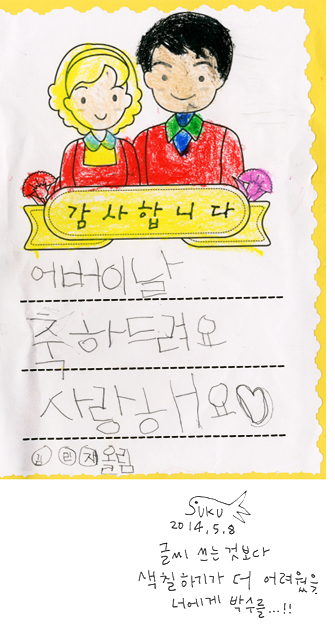 감사합니다
어버이날
축하드려요
사랑해요♡
김린재올림
SUKU
2014.5.8
글씨 쓰는것보다
색칠하기가 더 어려웠을
너에게 박수를...!!